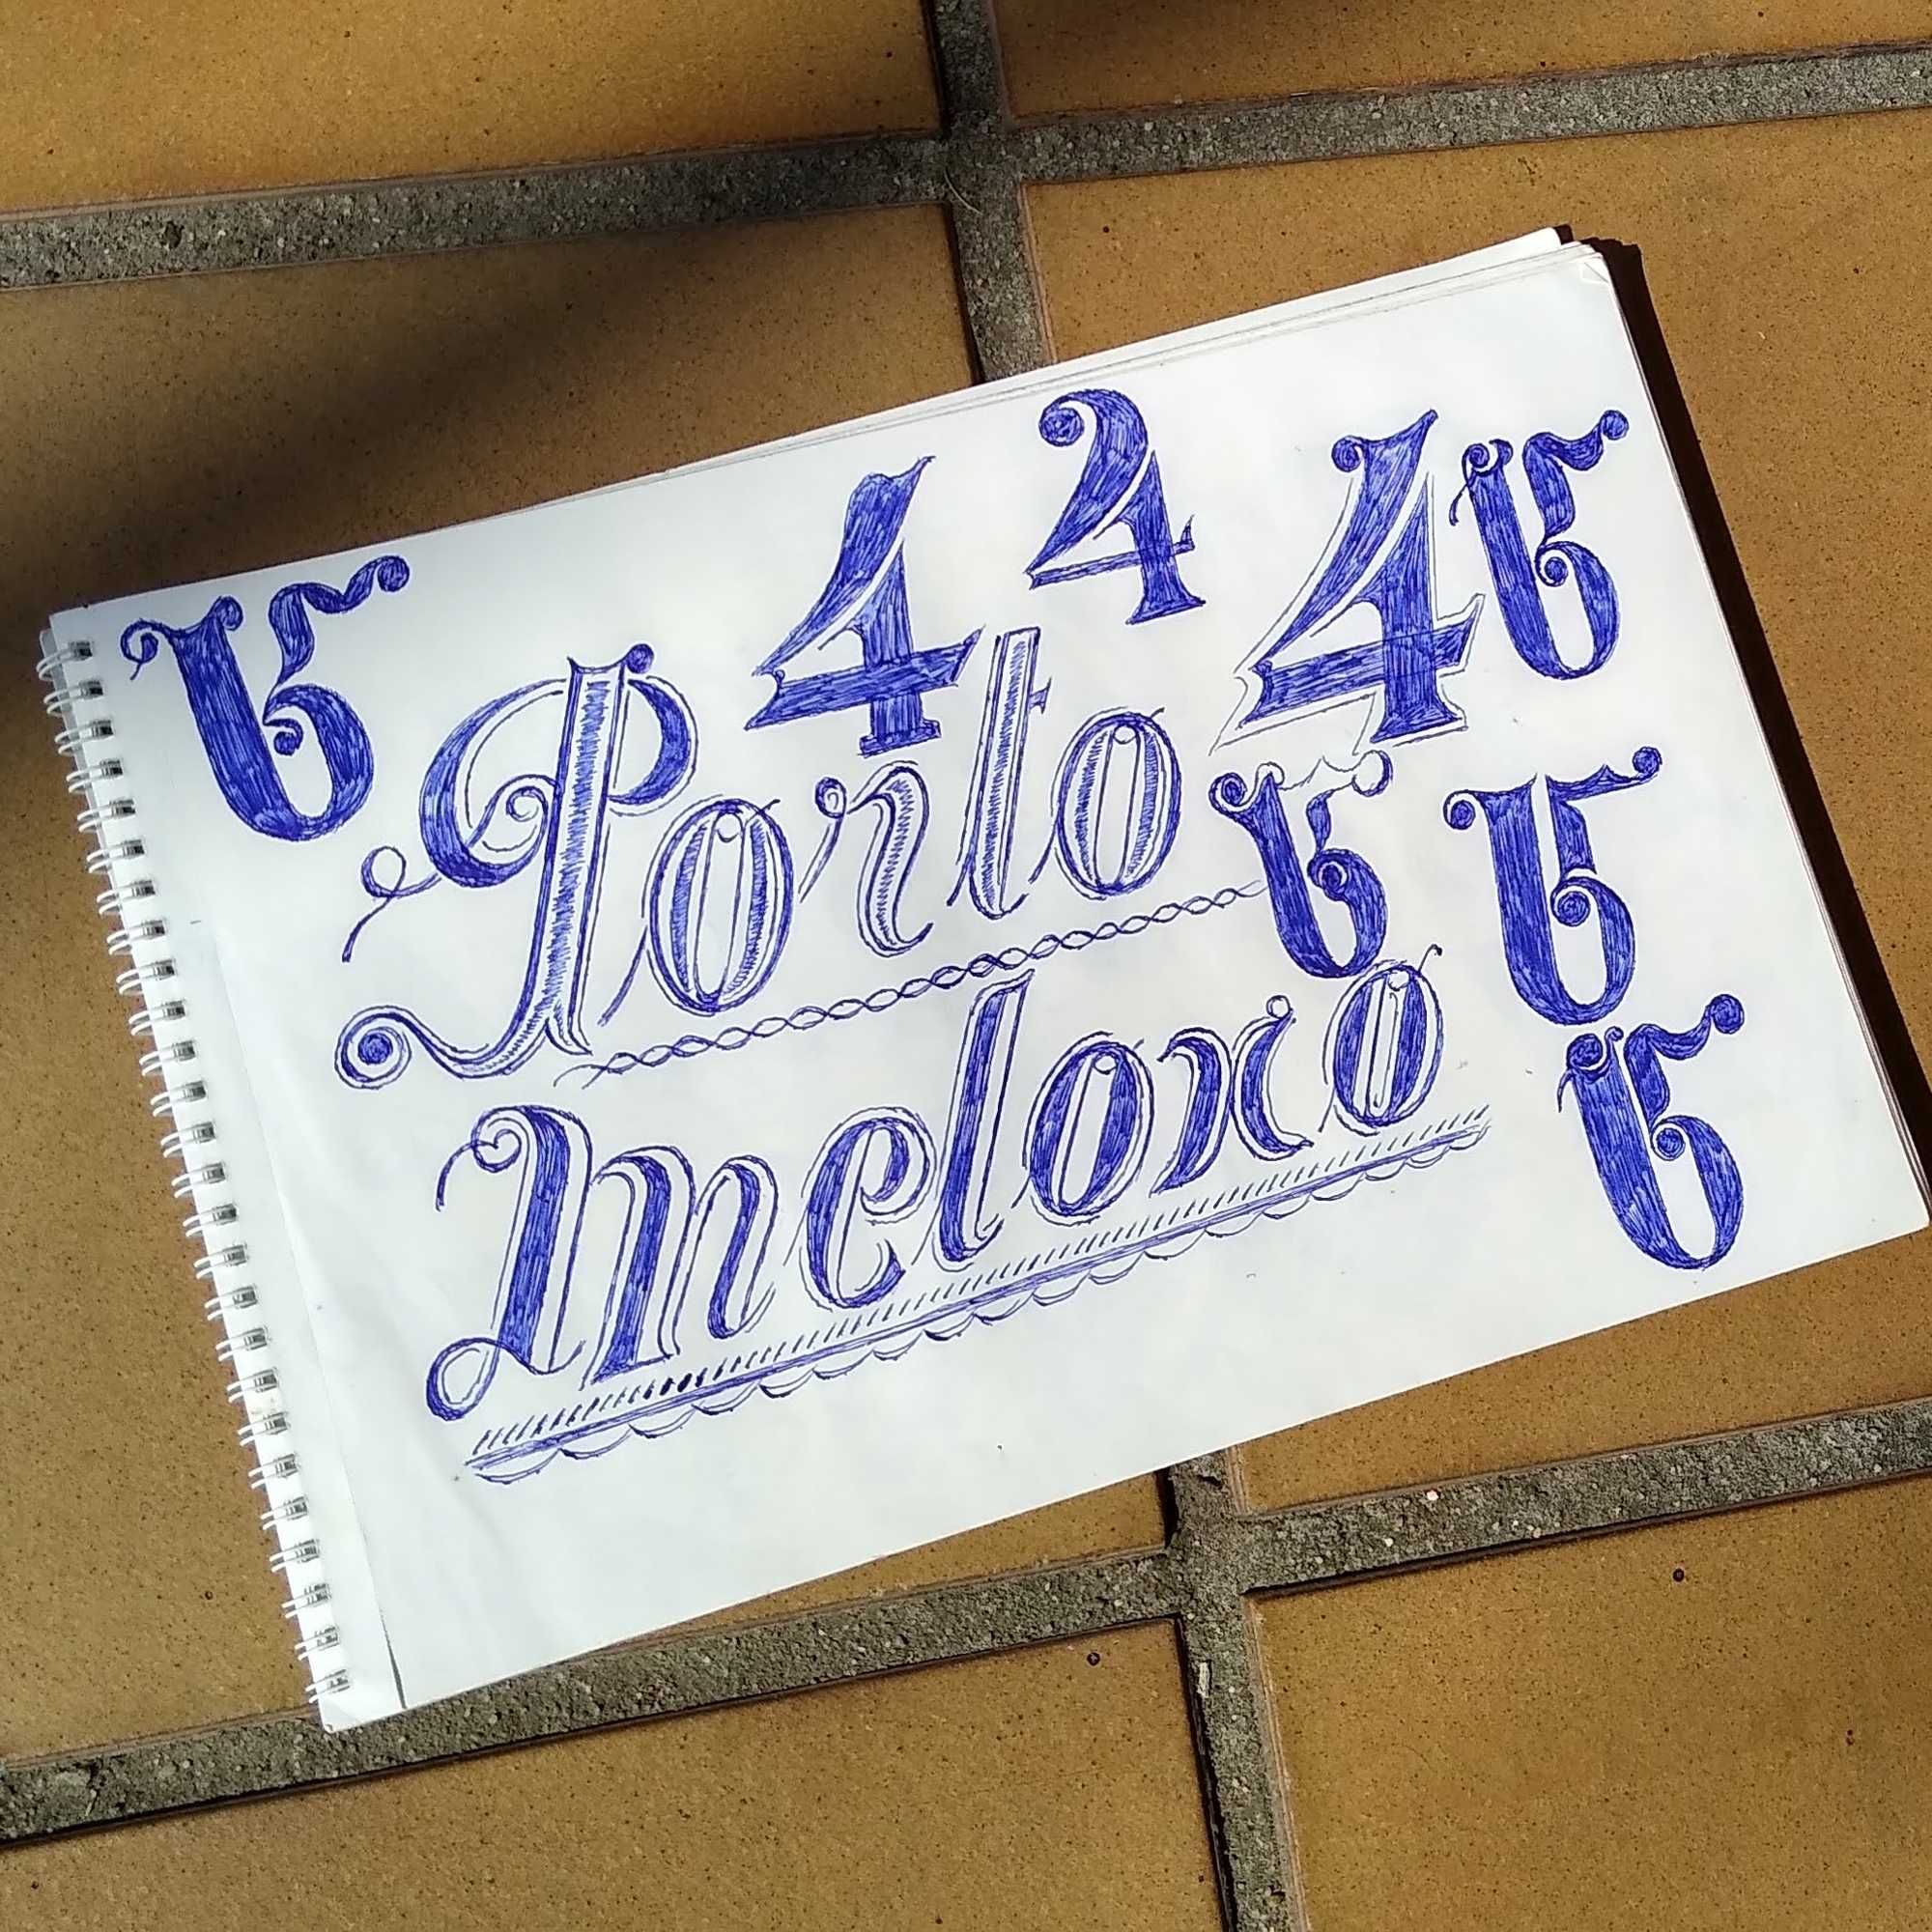 5 4 4 4 5
Porto
5 5
Meloxo
5